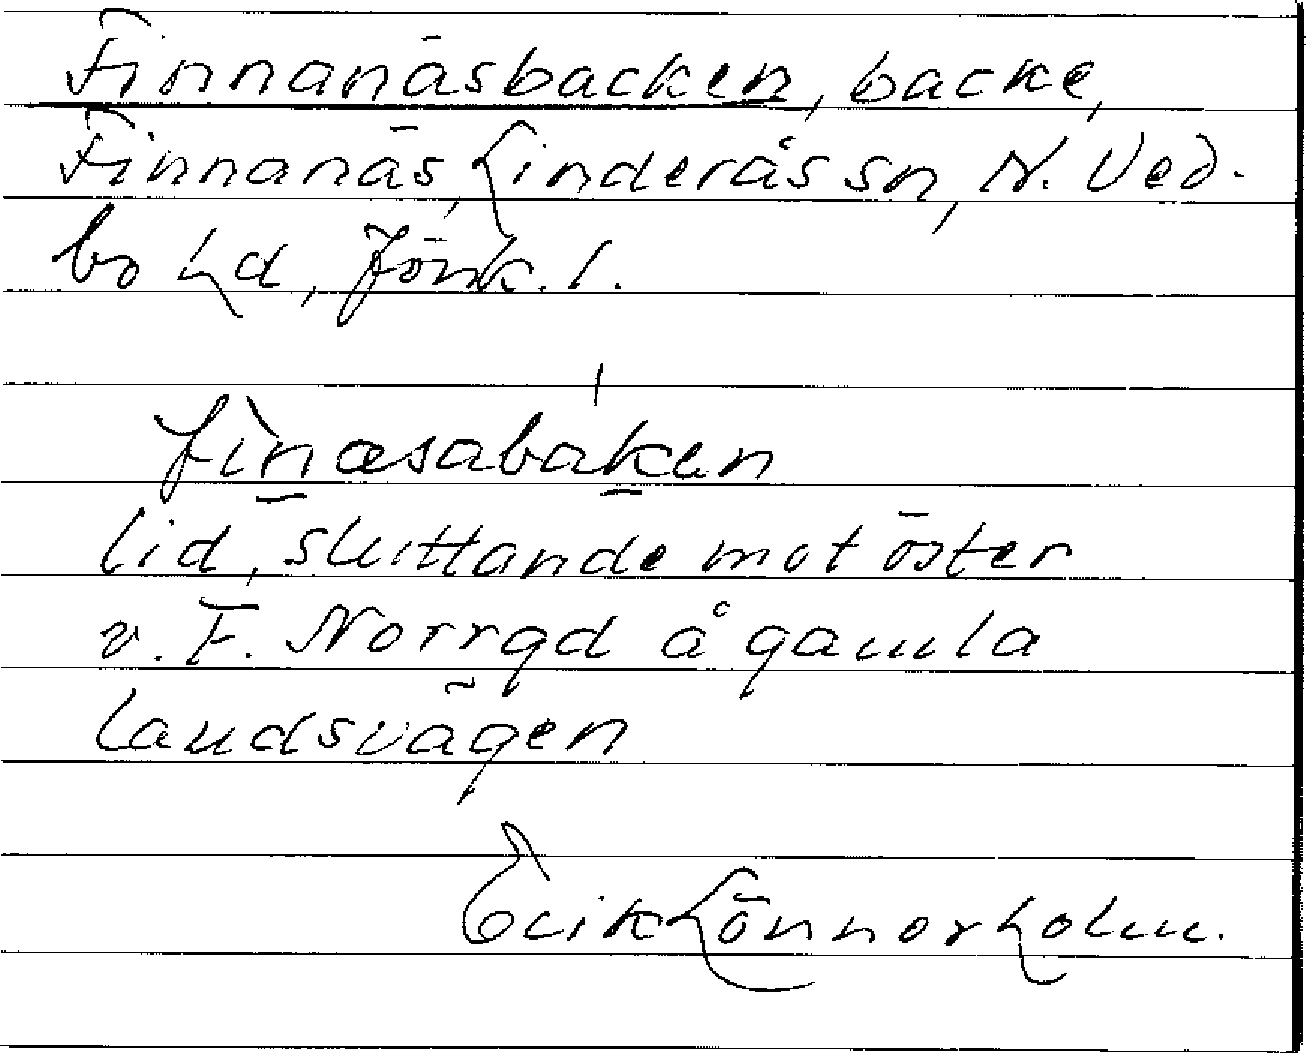 Finnanäsbacken, backe,
Finnanäs, Linderås sn, N. Ved-
bo hd, Jönk. l.
fìnæsabáken
lid, sluttande mot öster
v. F. Norrgd å gamla
landsvägen
Erik Lönnerholm.